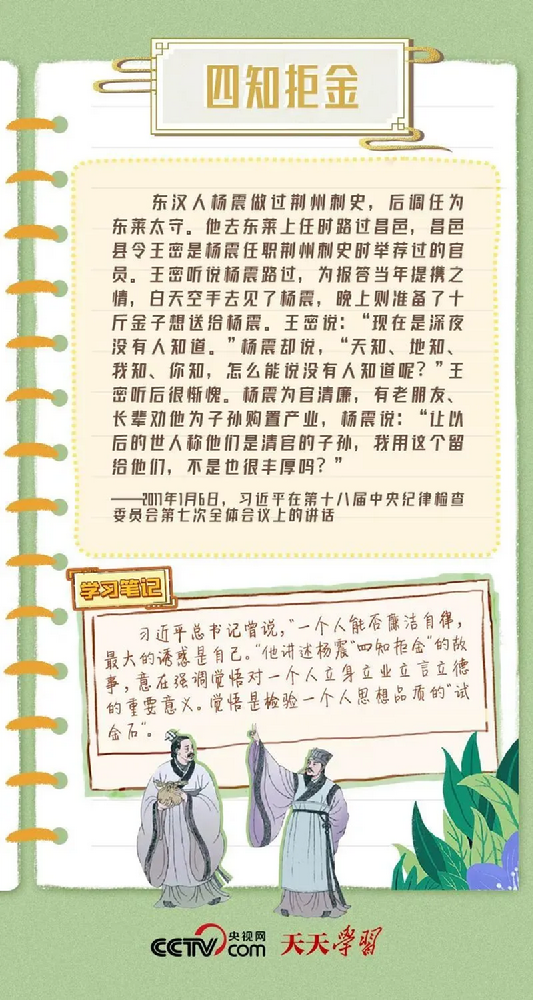 四知拒金
东汉人杨震做过荆州刺史，后调任为
东莱太守。他去东莱上任时路过昌邑，昌邑
县令王密是杨震任职荆州刺史时举荐过的官
员。王密听说杨震路过，为报答当年提携之
情，白天空手去见了杨震，晚上则准备了十
斤金子想送给杨震。王密说：“现在是深夜
没有人知道。”杨震却说，“天知、地知、
我知、你知，怎么能说没有人知道呢？”王
密听后很惭愧。杨震为官清廉，有老朋友、
长辈劝他为子孙购置产业，杨震说：“让以
后的世人称他们是清官的子孙，我用这个留
给他们，不是也很丰厚吗？”
——2017年1月6日，习近平在第十八届中央纪律检查
委员会第七次全体会议上的讲话
学习笔记
习近平总书记曾说，“一个人能否廉洁自律，
最大的诱惑是自己。”他讲述杨震“四知拒金”的故
事，意在强调觉悟对一个人立身立业立言立德
的重要意义。觉悟是检验一个人思想品质的“试
金石”。
CCTV 央视网 com 天天学习